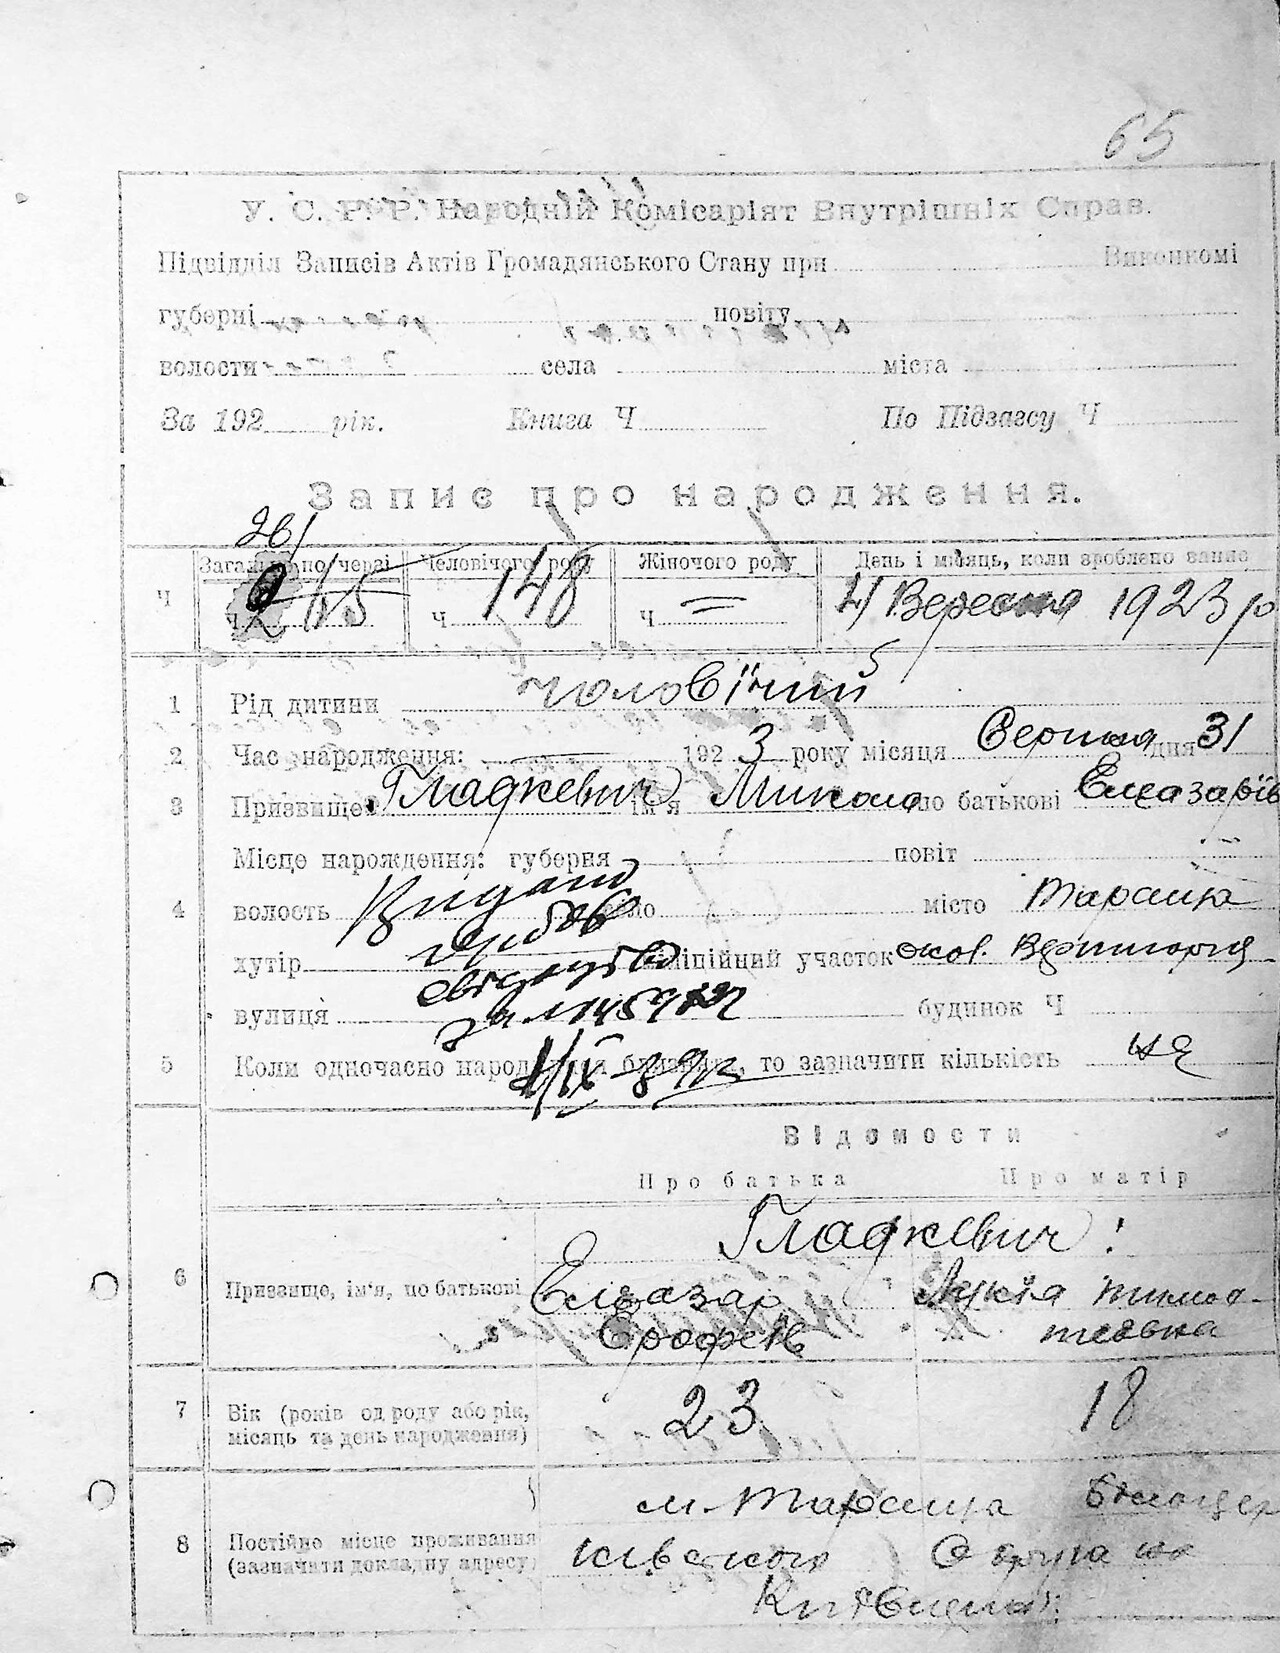 65
У. С. Р. Р. Народній Комісаріят Внутрішніх Справ.
Підвідділ Записів Актів Громадянського Стану при Виконкомі
губерні повіту
волости села міста
За 192 рік. Книга Ч По Підзагсу Ч
Запис про народження.
261
Загально по черзі Человічого роду Жіночого роду День і місяць, коли зроблено запис
Ч Ч Ч 148 Ч = 4 Вересня 1923 р
1 Рід дитини чоловічий
2 Час народження: 1923 року місяця Серпня дня 31
3 Призвище Гладкевич ім'я Микола по батькові Елеазарів
Місце нарождення: губерня повіт
4 волость Видано село місто Тараща
хутір міліційний участок окол.
свідоцтво
вулиця за будинок Ч
5 Коли одночасно народилися близнята, то зазначити кількість ні
1/IX
Відомости
Про батька Про матір
Гладкевич:
6 Призвище, ім'я, по батькові Елеазар Лукія Тимо-
Єрофеїв теївна
7 Вік (років од роду або рік, місяць та день народження) 23 18
м. Тараща
8 Постійне місце проживання (зазначати докладну адресу) Округа на
Київщині: